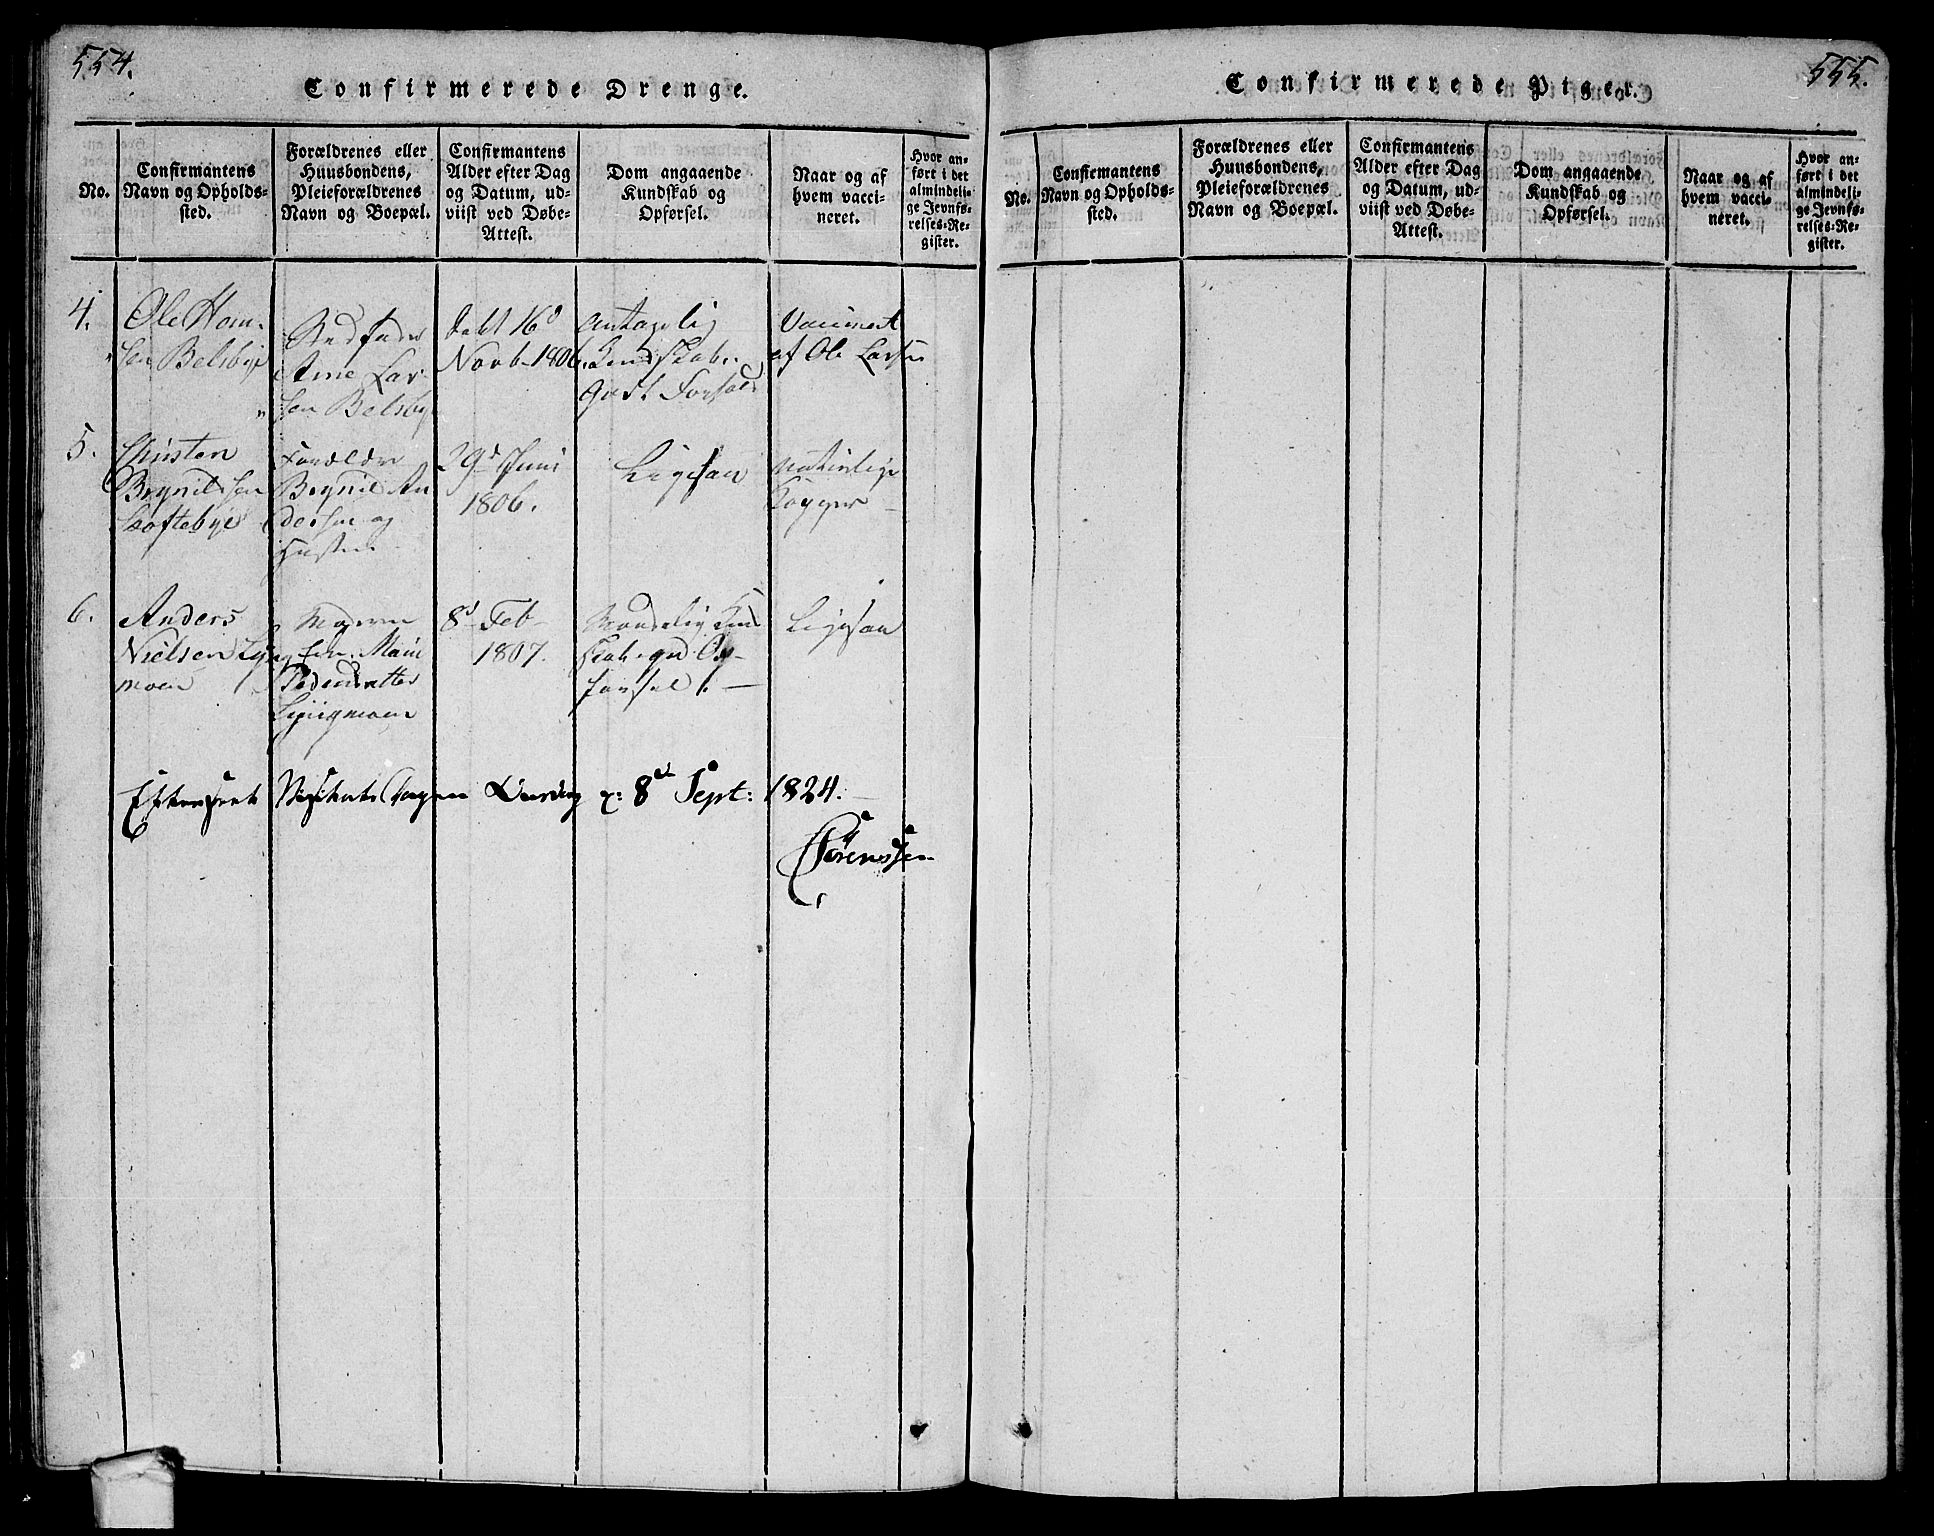 554.
Confirmerede Drenge.
No.
Confirmantens
Navn og Opholds-
sted.
Forældrenes eller
Huusbondens,
Pleieforældrenes
Navn og Boepæl.
Confirmantens
Alder efter Dag
og Datum, ud-
viist ved Døbe-
Attest.
Dom angaaende
Kundskab og
Opførsel.
Naar og af
hvem vacci-
neret.
Hvor an-
ført i det
almindeli-
ge Jevnfø-
relses-Re-
gister.
4.
Ole
sen Belsbye
Arne Lar-
sen Belsbye
døbt 16d
Novb. 1806
antagelig
Kundskab.
godt Forhold
Vaccineret
af Ole Larsen
5.
Christen
Brynildsen
Toftebye
Forældre
Brynild An
dersen og
Hustru
29d Juni
1806.
Ligesaa
naturlige
Kopper
6.
Anders
Nielsen Lyng
moen
Moderen
Pedersdatter
Lyngmoen
8d Feb
1807.
Maadelig Kund
skab. god Op-
førsel.
Ligesaa
Efterseet Visitats Dagen d: 8de Sept: 1824.
Sørenssen
555.
Confirmerede Piger.
No.
Confirmantens
Navn og Opholds-
sted.
Forældrenes eller
Huusbondens,
Pleieforældrenes
Navn og Boepæl.
Confirmantens
Alder efter Dag
og Datum, ud-
viist ved Døbe-
Attest.
Dom angaaende
Kundskab og
Opførsel.
Naar og af
hvem vacci-
neret.
Hvor an-
ført i det
almindeli-
ge Jevnfø-
relses-Re-
gister.